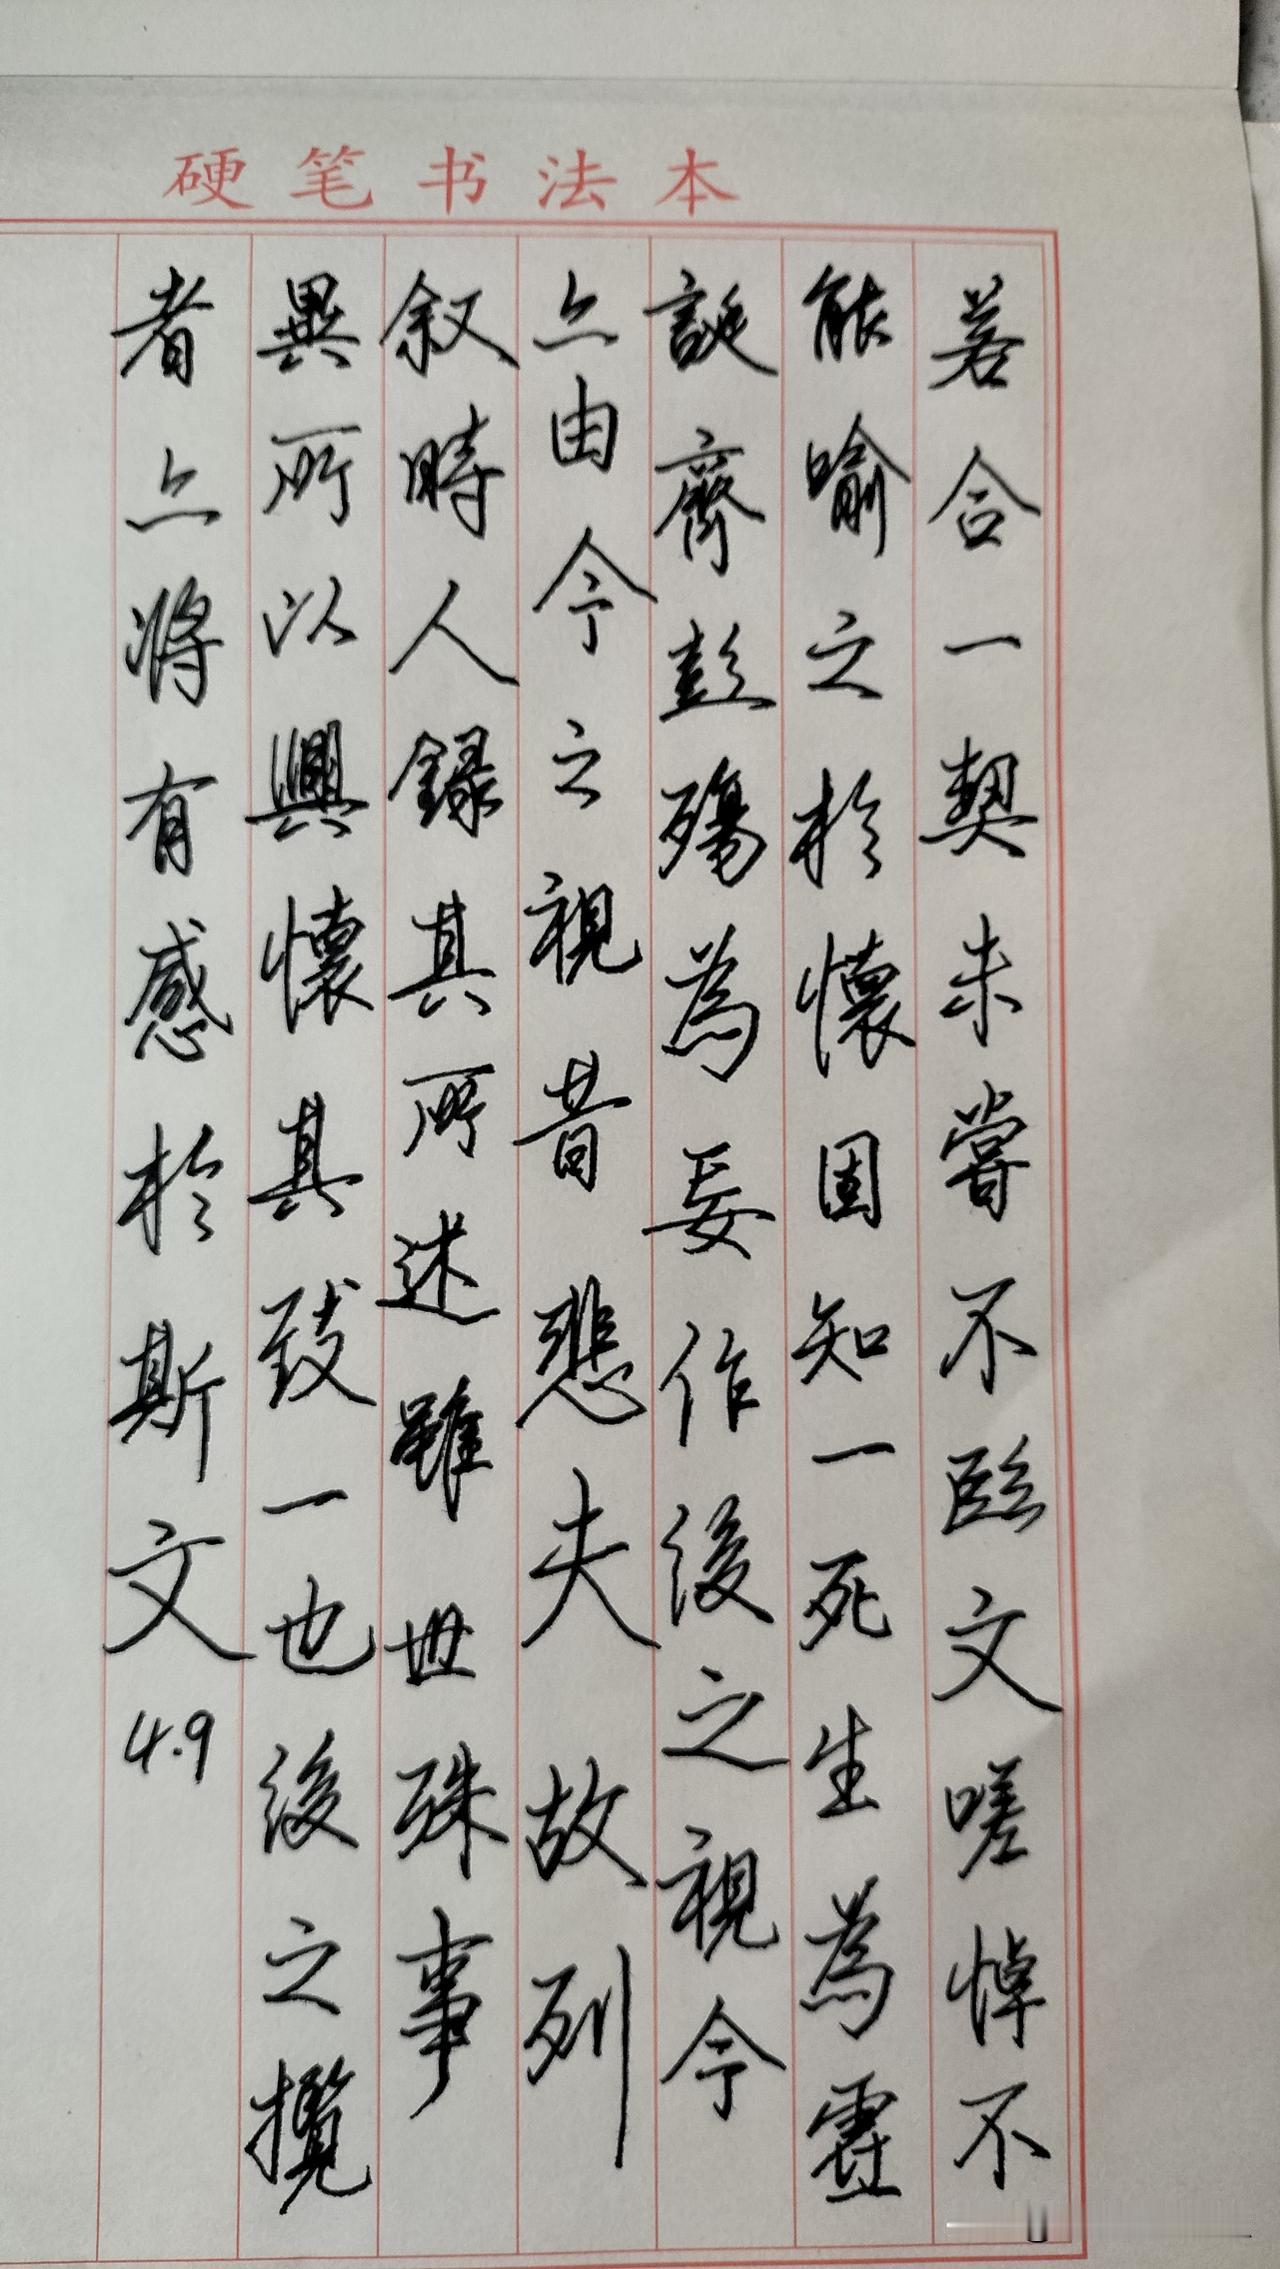 硬笔书法本
若合一契未嘗不臨文嗟悼不
能喻之於懷固知一死生為虛
誕齊彭殤為妄作後之視今
亦由今之視昔悲夫故列
叙時人錄其所述雖世殊事
異所以興懷其致一也後之攬
者亦將有感於斯文
4.9